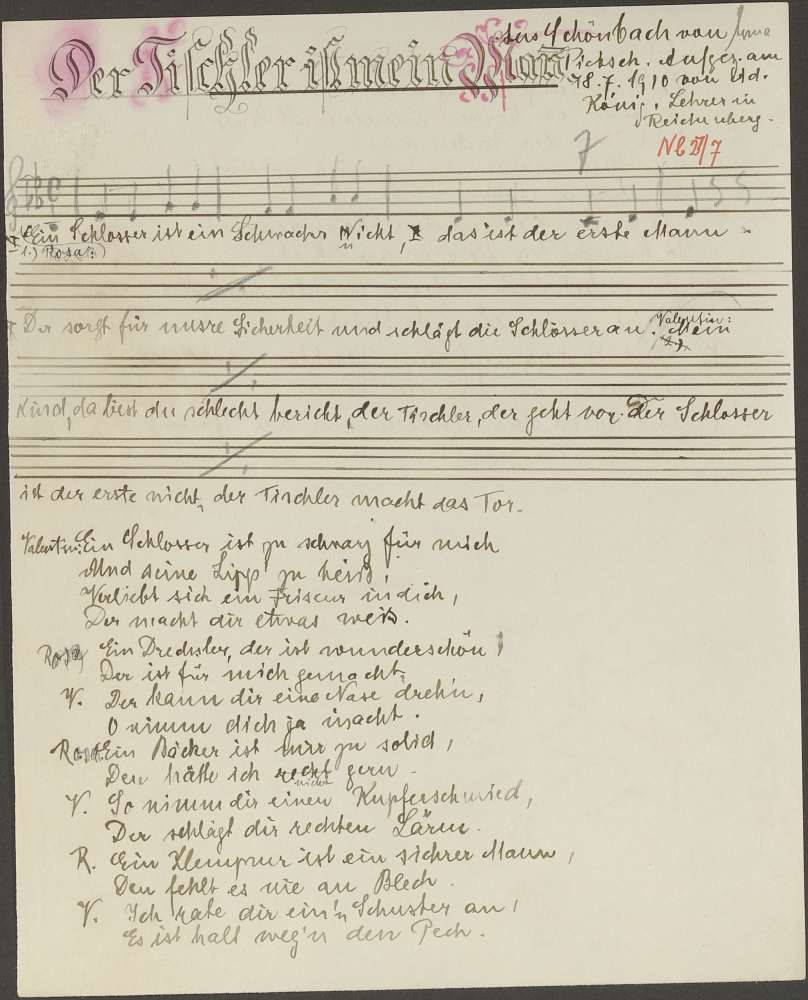 Der Tischler ist mein Mann
Aus Schönbach von Anna
Pietsch. Aufgez. am
18.7.1910 von Ad.
König, Lehrer in
Reichenberg.
7
Ein Schlosser ist ein Schwacher Nicht, das ist der erste Mann -
1.) Rosa:)
Der sorgt für unsre Sicherheit und schlägt die Schlösser an. Valentin: Mein
Kind, da bist du schlecht bericht, der Tischler, der geht vor. Der Schlosser
ist der erste nicht, der Tischler macht das Tor.
Valentin: Ein Schlosser ist zu schwarz für mich
Und seine Lipp' zu heiß,
Verliebt sich ein Friseur in dich,
Der macht dir etwas weis.
Rosa Ein Drechsler, der ist wunderschön,
Der ist für mich gemacht,
V. Der kann dir eine Nase dreh'n,
O nimm dich ja inacht.
Rosa Ein Bäcker ist mir zu solid,
Den hätte ich nicht gern.
V. So nimm dir einen Kupferschmied,
Der schlägt dir rechten Lärm.
R. Ein Klempner ist ein sichrer Mann,
Den fehlt es nie an Blech.
V. Ich rate dir ein'n Schuster an,
Es ist halt weg'n den Pech.